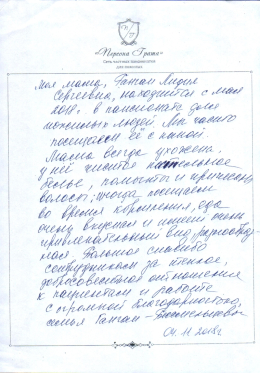 Моя мама, Гатал Лидия
Сергеевна, находится с мая
2018г. в пансионате для
пожилых людей. Мы часто
посещаем её с женой.
Мама всегда ухожена,
у неё чистое постельное
бельё, помыты и причесаны
волосы; иногда посещаем
во время кормления, еда
очень вкусная и имеет очень
привлекательный вид, разнообраз-
ная. Большое спасибо
сотрудникам за теплое,
добросовестное отношение
к пациентам и работе
с огромной благодарностью,
семья
04.11.2018г